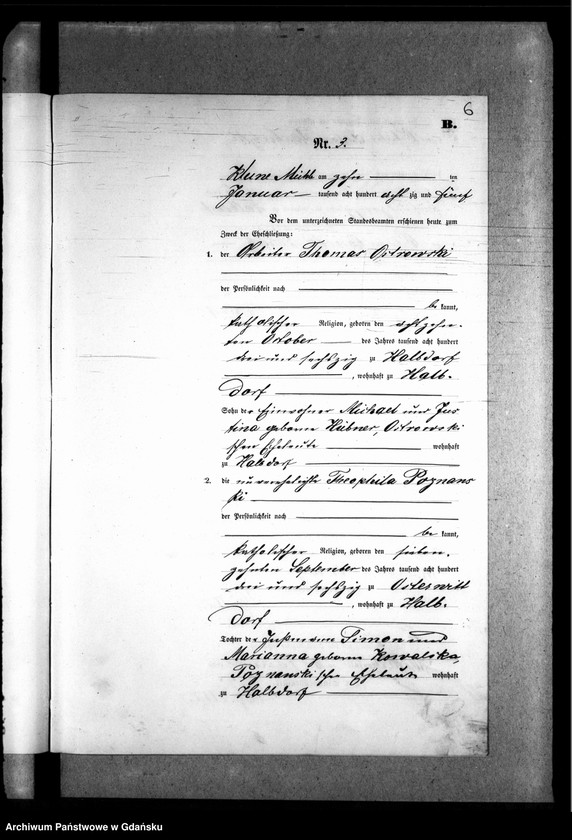 6
B.
Nr. 3.
am zehn ten
Januar tausend acht hundert acht zig und fünf
Vor dem unterzeichneten Standesbeamten erschienen heute zum
Zweck der Eheschließung:
1. der Arbeiter Thomas Ostrowski
der Persönlichkeit nach
be kannt,
katholischer Religion, geboren den achtzehn-
ten October des Jahres tausend acht hundert
drei und sechszig zu Halbdorf
, wohnhaft zu Halb-
dorf
Sohn der Einwohner Michael und Jus
tina geborne Hübner, Ostrowski
schen Eheleute wohnhaft
zu Halbdorf
2. die unverehelichte Theophila Poznans
ki
der Persönlichkeit nach
be kannt,
katholischer Religion, geboren den sieben-
zehnten September des Jahres tausend acht hundert
drei und sechszig zu
, wohnhaft zu Halb-
dorf
Tochter der Simon und
Marianna geborne Kowalska,
Poznanski schen Eheleute wohnhaft
zu Halbdorf
Archiwum Państwowe w Gdańsku